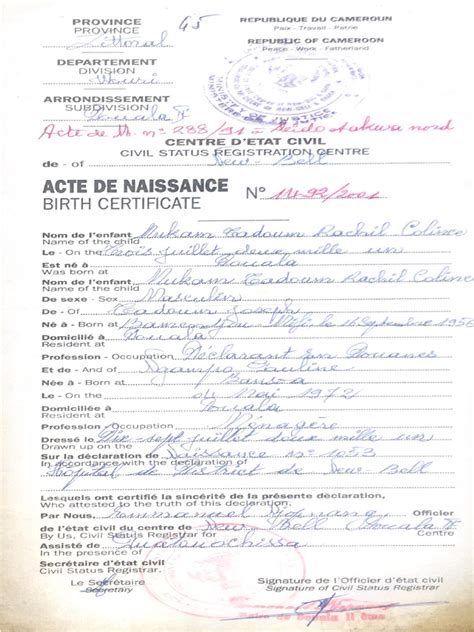 PROVINCE
PROVINCE
Littoral
45
REPUBLIQUE DU CAMEROUN
Paix - Travail - Patrie
REPUBLIC OF CAMEROON
Peace - Work - Fatherland
DEPARTEMENT
DIVISION
Wouri
ARRONDISSEMENT
SUBDIVISION
Douala
Acte de M. n° 288/91 = nord
CENTRE D'ETAT CIVIL
CIVIL STATUS REGISTRATION CENTRE
de - of New-Bell
ACTE DE NAISSANCE N° 1492/2001
BIRTH CERTIFICATE
Nom de l'enfant Mukam Tadoum Rachil Coline
Name of the child
Le - On the Trois juillet deux mille un
Est né à Douala
Was born at
Nom de l'enfant Mukam Tadoum Rachil Coline
Name of the child
De sexe - Sex Masculin
De - Of Tadoum Joseph
Né à - Born at le 16 Septembre
Domicilié à Douala
Resident at
Profession - Occupation Déclarant en Douanes
Et de - And of Ngampo Pauline
Née à - Born at Bansoa
Le - On the Mai 1972
Domiciliée à Douala
Resident at
Profession - Occupation Ménagère
Dressé le Dix-sept juillet deux mille un
Drawn up on the
Sur la déclaration de Naissance n° 1053
In accordance with the declaration of
Hôpital de District de New-Bell
Lesquels ont certifié la sincérité de la présente déclaration.
Who attested to the truth of this declaration.
Par Nous, Emmanuel Officier
de l'état civil du centre de New Bell Douala
By Us, Civil Status Registrar for Centre
Assisté de
In the presence of
Secrétaire d'état civil
Civil Status Registrar.
Le Secrétaire
Secretary
Signature de l'Officier d'état civil
Signature of Civil Status Registrar
Maire de Douala II ème